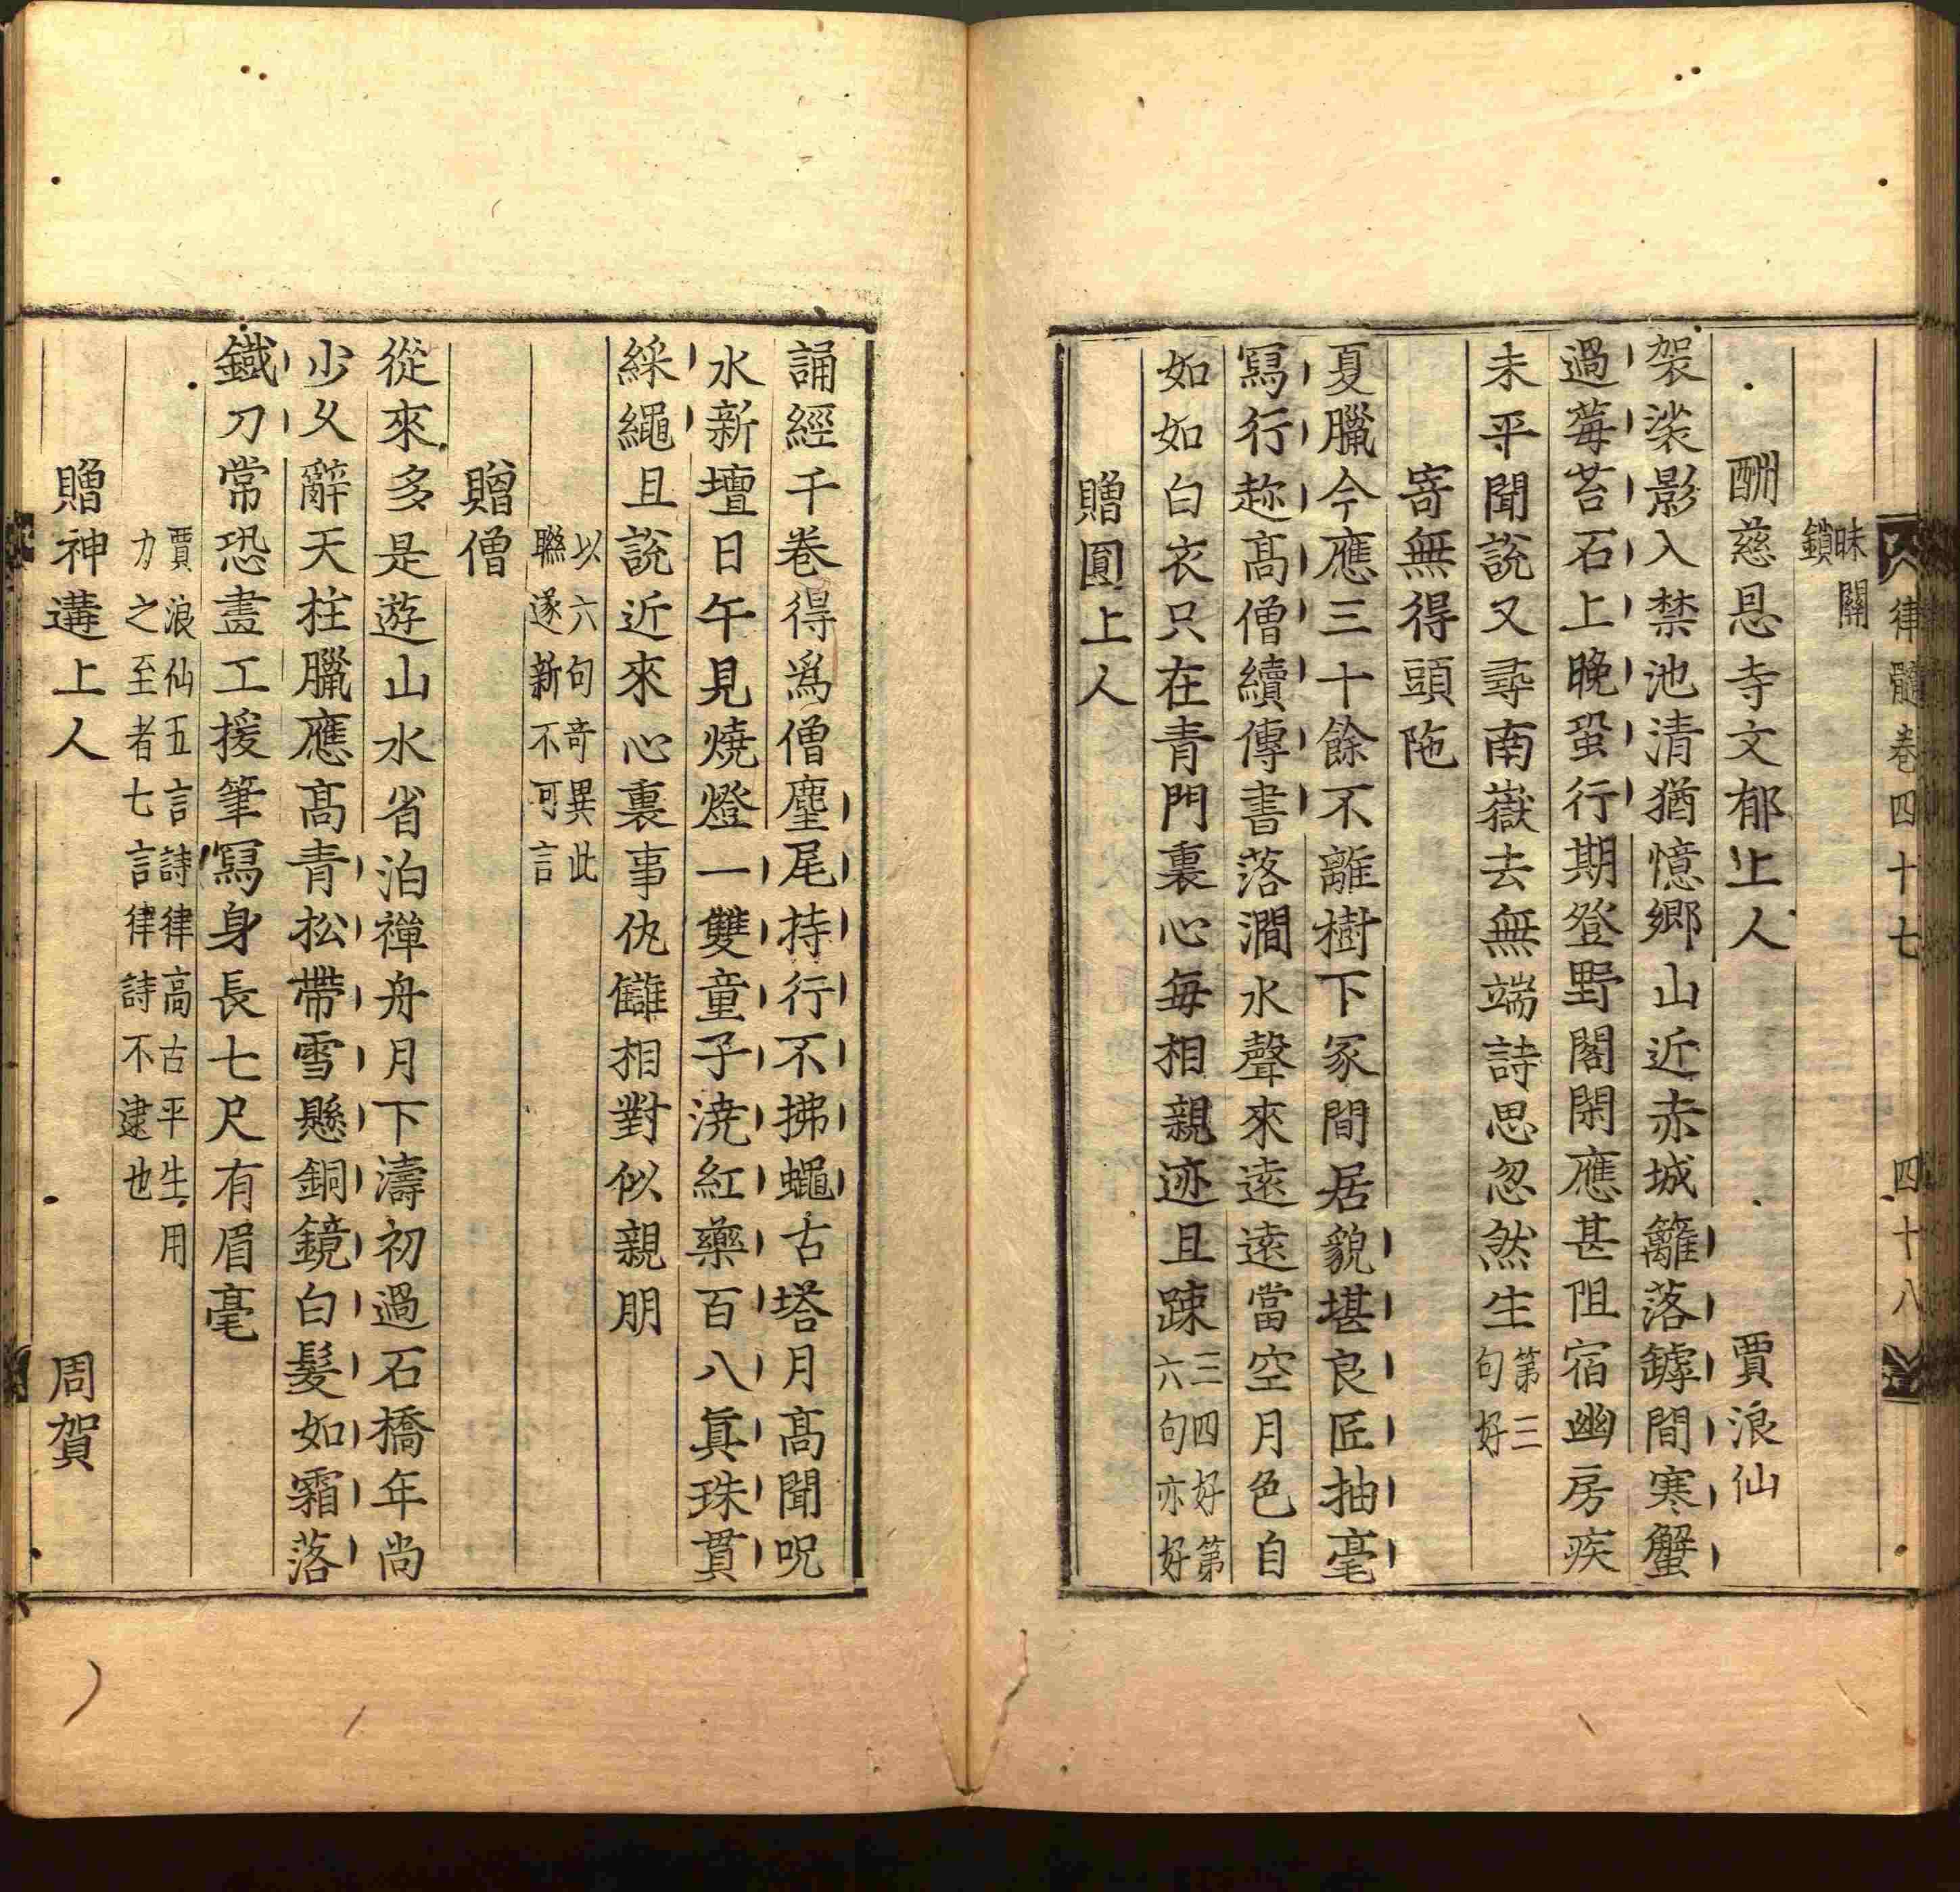 律髓卷四十七 四十八
昧關
鎖
酬慈恩寺文郁上人 賈浪仙
袈裟影入禁池清猶憶鄉山近赤城籬落罅間寒蟹
過莓苔石上晚蛩行期登野閣閑應甚阻宿幽房疾
未平聞說又尋南嶽去無端詩思忽然生第三
句好
寄無得頭陁
夏臘今應三十餘不離樹下冢間居貌堪良匠抽毫
寫行趂高僧續傳書落澗水聲來遠遠當空月色自
如如白衣只在青門裏心每相親迹且踈三四好第
六句亦好
贈圓上人
誦經千卷得爲僧麈尾持行不拂蠅古塔月高聞呪
水新壇日午見燒燈一雙童子澆紅藥百八真珠貫
綵繩且說近來心裏事仇讎相對似親朋
以六句竒異此
聮遂新不可言
贈僧
從來多是遊山水省泊禪舟月下濤初過石橋年尚
少乆辭天柱臘應高青松帶雪懸銅鏡白髮如霜落
鐵刀常恐畫工援筆寫身長七尺有眉毫
賈浪仙五言詩律高古平生用
力之至者七言律詩不逮也
贈神遘上人 周賀